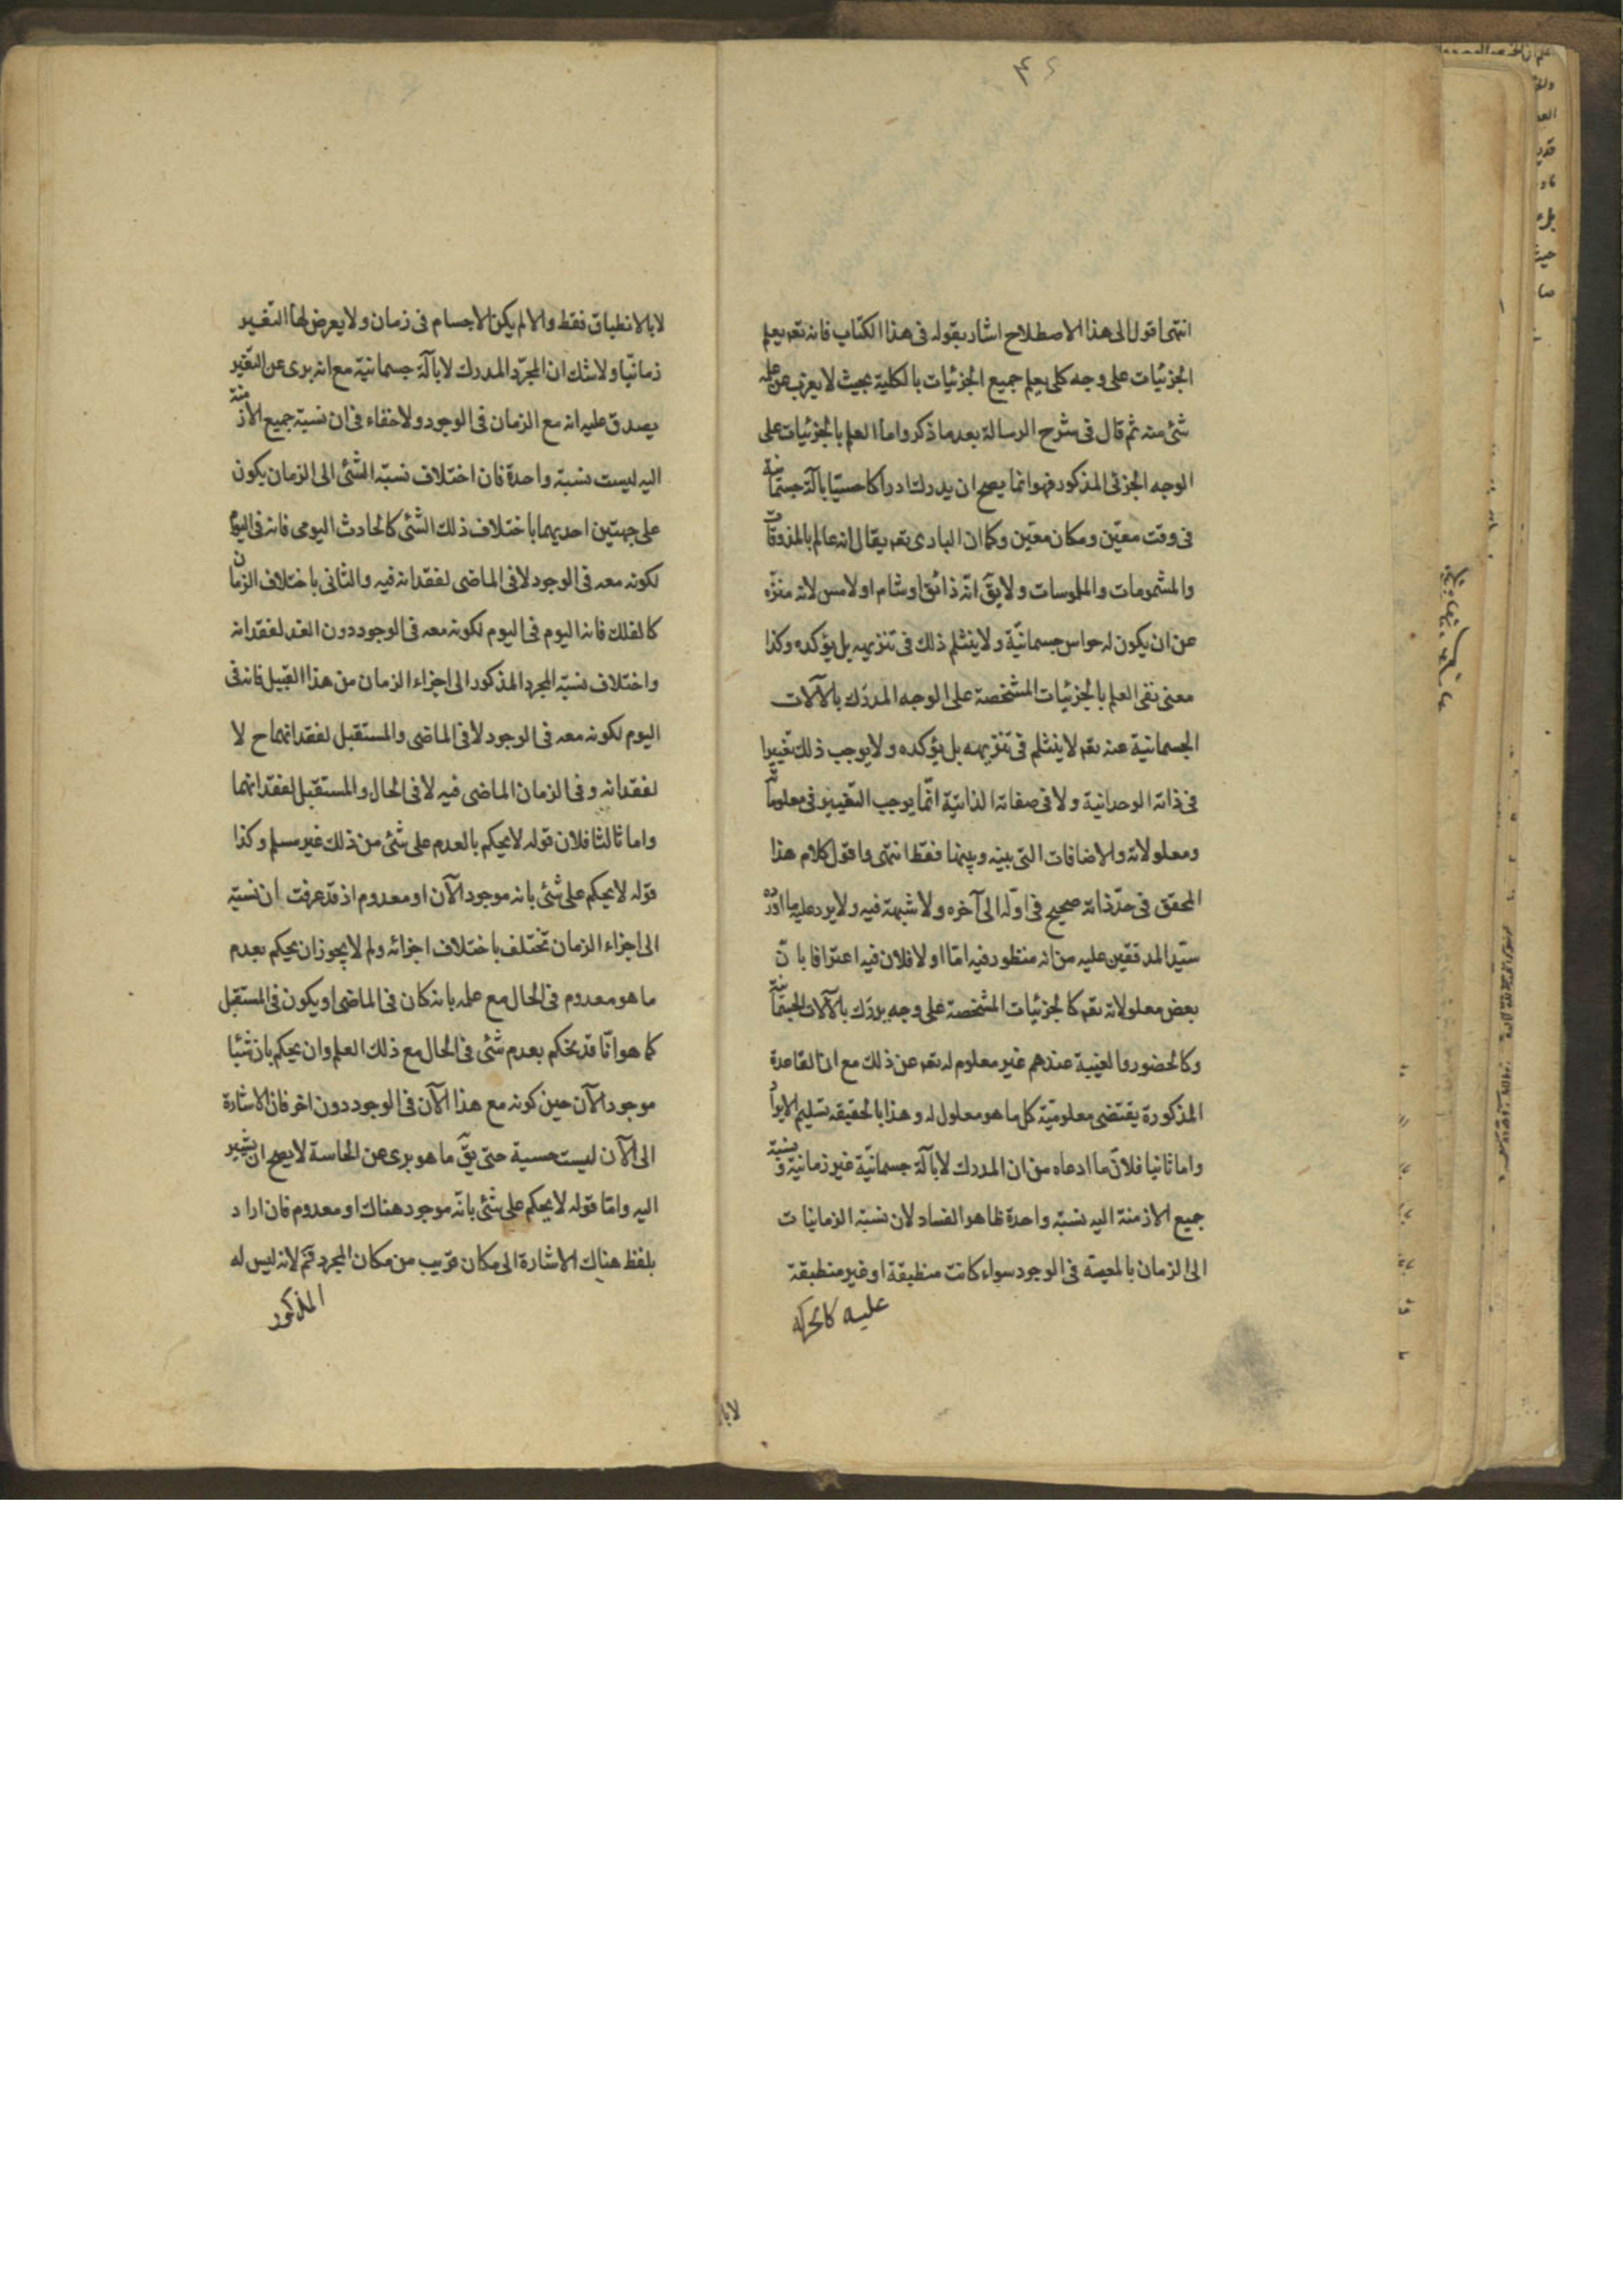 انتهى اقول الى هذا الاصطلاح اشار بقوله فى هذا الكتاب فانه تعم يعلم
الجزئيات على وجه كلى يعلم جميع الجزئيات بالكلية بحيث لا يعزب عن علمه
شئ منه ثم قال فى شرح الرسالة بعد ما ذكر واما العلم بالجزئيات على
الوجه الجزئى المذكور فهو انما يصح ان يدرك ادراكا حسيّا بآلة جسمانية
فى وقت معيّن ومكان معيّن وكما ان البارى تعم يقال انه عالم بالمذوقات
والمشمومات والملموسات ولا يقّ انّه ذائق او شام او لامس لانه منزّه
عن ان يكون له حواس جسمانيّة ولا ينثلم ذلك فى تنزيهه بل يؤكده وكذا
معنى نفى العلم بالجزئيات المشخصة على الوجه المدرك بالآلات
الجسمانية عنه تعم لا ينثلم فى تنزيهه بل يؤكده ولا يوجب ذلك تغييرا
فى ذاته الوحدانية ولا فى صفاته الذاتيّة انّما يوجب التغيير فى معلوماته
ومعلولاته والاضافات التى بينه وبينها فقط انتهى واقول كلام هذا
المحقق فى حدّ ذاته صحيح فى اوّله الى آخره ولا شبهة فيه ولا يرد عليه ما اورده
سيّد المدققين عليه من انه منظور فيه امّا اولا فلان فيه اعترافا بانّ
بعض معلولاته تعم كالجزئيات المشخصة على وجه يدرك بالآلات الجسمانية
وكالحضور والغيبة عندهم غير معلوم له تعم عن ذلك مع ان القاعدة
المذكورة يقتضى معلوميّة كل ما هو معلول له وهذا بالحقيقه تسليم الايراد
واما ثانيا فلانّ ما ادعاه من ان المدرك لا بآلة جسمانيّة غير زمانية ونسبة
جميع الازمنة اليه نسبة واحدة ظاهر الفساد لان نسبة الزمانيات
الى الزمان بالمعية فى الوجود سواء كانت منطبقة او غير منطبقة
عليه كالحركه
لابا
لا بالانطباق فقط والا لم يكن الاجسام فى زمان ولا يعرض لها التغير
زمانيّا ولا شك ان المجرّد المدرك لا بآلة جسمانيّة مع انه برى عن التغير
يصدق عليه انه مع الزمان فى الوجود ولا خفاء فى ان نسبة جميع الازمنة
اليه ليست نسبة واحدة فان اختلاف نسبة الشئ الى الزمان يكون
على جهتين احديهما باختلاف ذلك الشئ كالحادث اليومى فانه فى اليوم
لكونه معه فى الوجود لا فى الماضى لفقدانه فيه والثانى باختلاف الزمان
كالفلك فانه اليوم فى اليوم لكونه معه فى الوجود دون الغد لفقدانه
واختلاف نسبة المجرد المذكور الى اجزاء الزمان من هذا القبيل فانه فى
اليوم لكونه معه فى الوجود لا فى الماضى والمستقبل لفقدانهما ح لا
لفقدانه وفى الزمان الماضى فيه لا فى الحال والمستقبل لفقدانهما
واما ثالثا فلان قوله لا يحكم بالعدم على شئ من ذلك غير مسلم وكذا
قوله لا يحكم على شئ بانه موجود الآن او معدوم اذ قد عرفت ان نسبته
الى اجزاء الزمان تختلف باختلاف اجزائه ولم لا يجوز ان يحكم بعدم
ما هو معدوم فى الحال مع علمه بانه كان فى الماضى او يكون فى المستقبل
كما هو انّا قد نحكم بعدم شئ فى الحال مع ذلك العلم وان يحكم بان شيئا
موجود الآن حين كونه مع هذا الآن فى الوجود دون اخر فان الاشارة
الى الآن ليست حسية حتى يقّ ما هو برى عن الحاسة لا يصح ان يشير
اليه وامّا قوله لا يحكم على شئ بانّه موجود هناك او معدوم فان اراد
بلفظ هناك الاشارة الى مكان قريب من مكان المجرد فتم لانه ليس له
المذكور